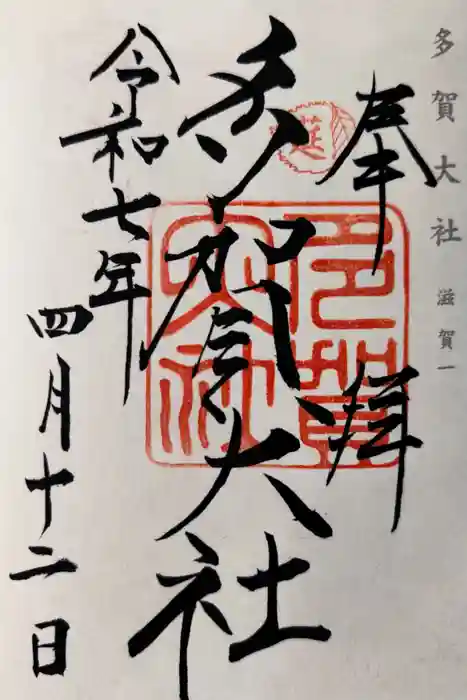 多賀大社 滋賀一
奉拝
多賀大社
令和七年
四月十二日
多賀大社